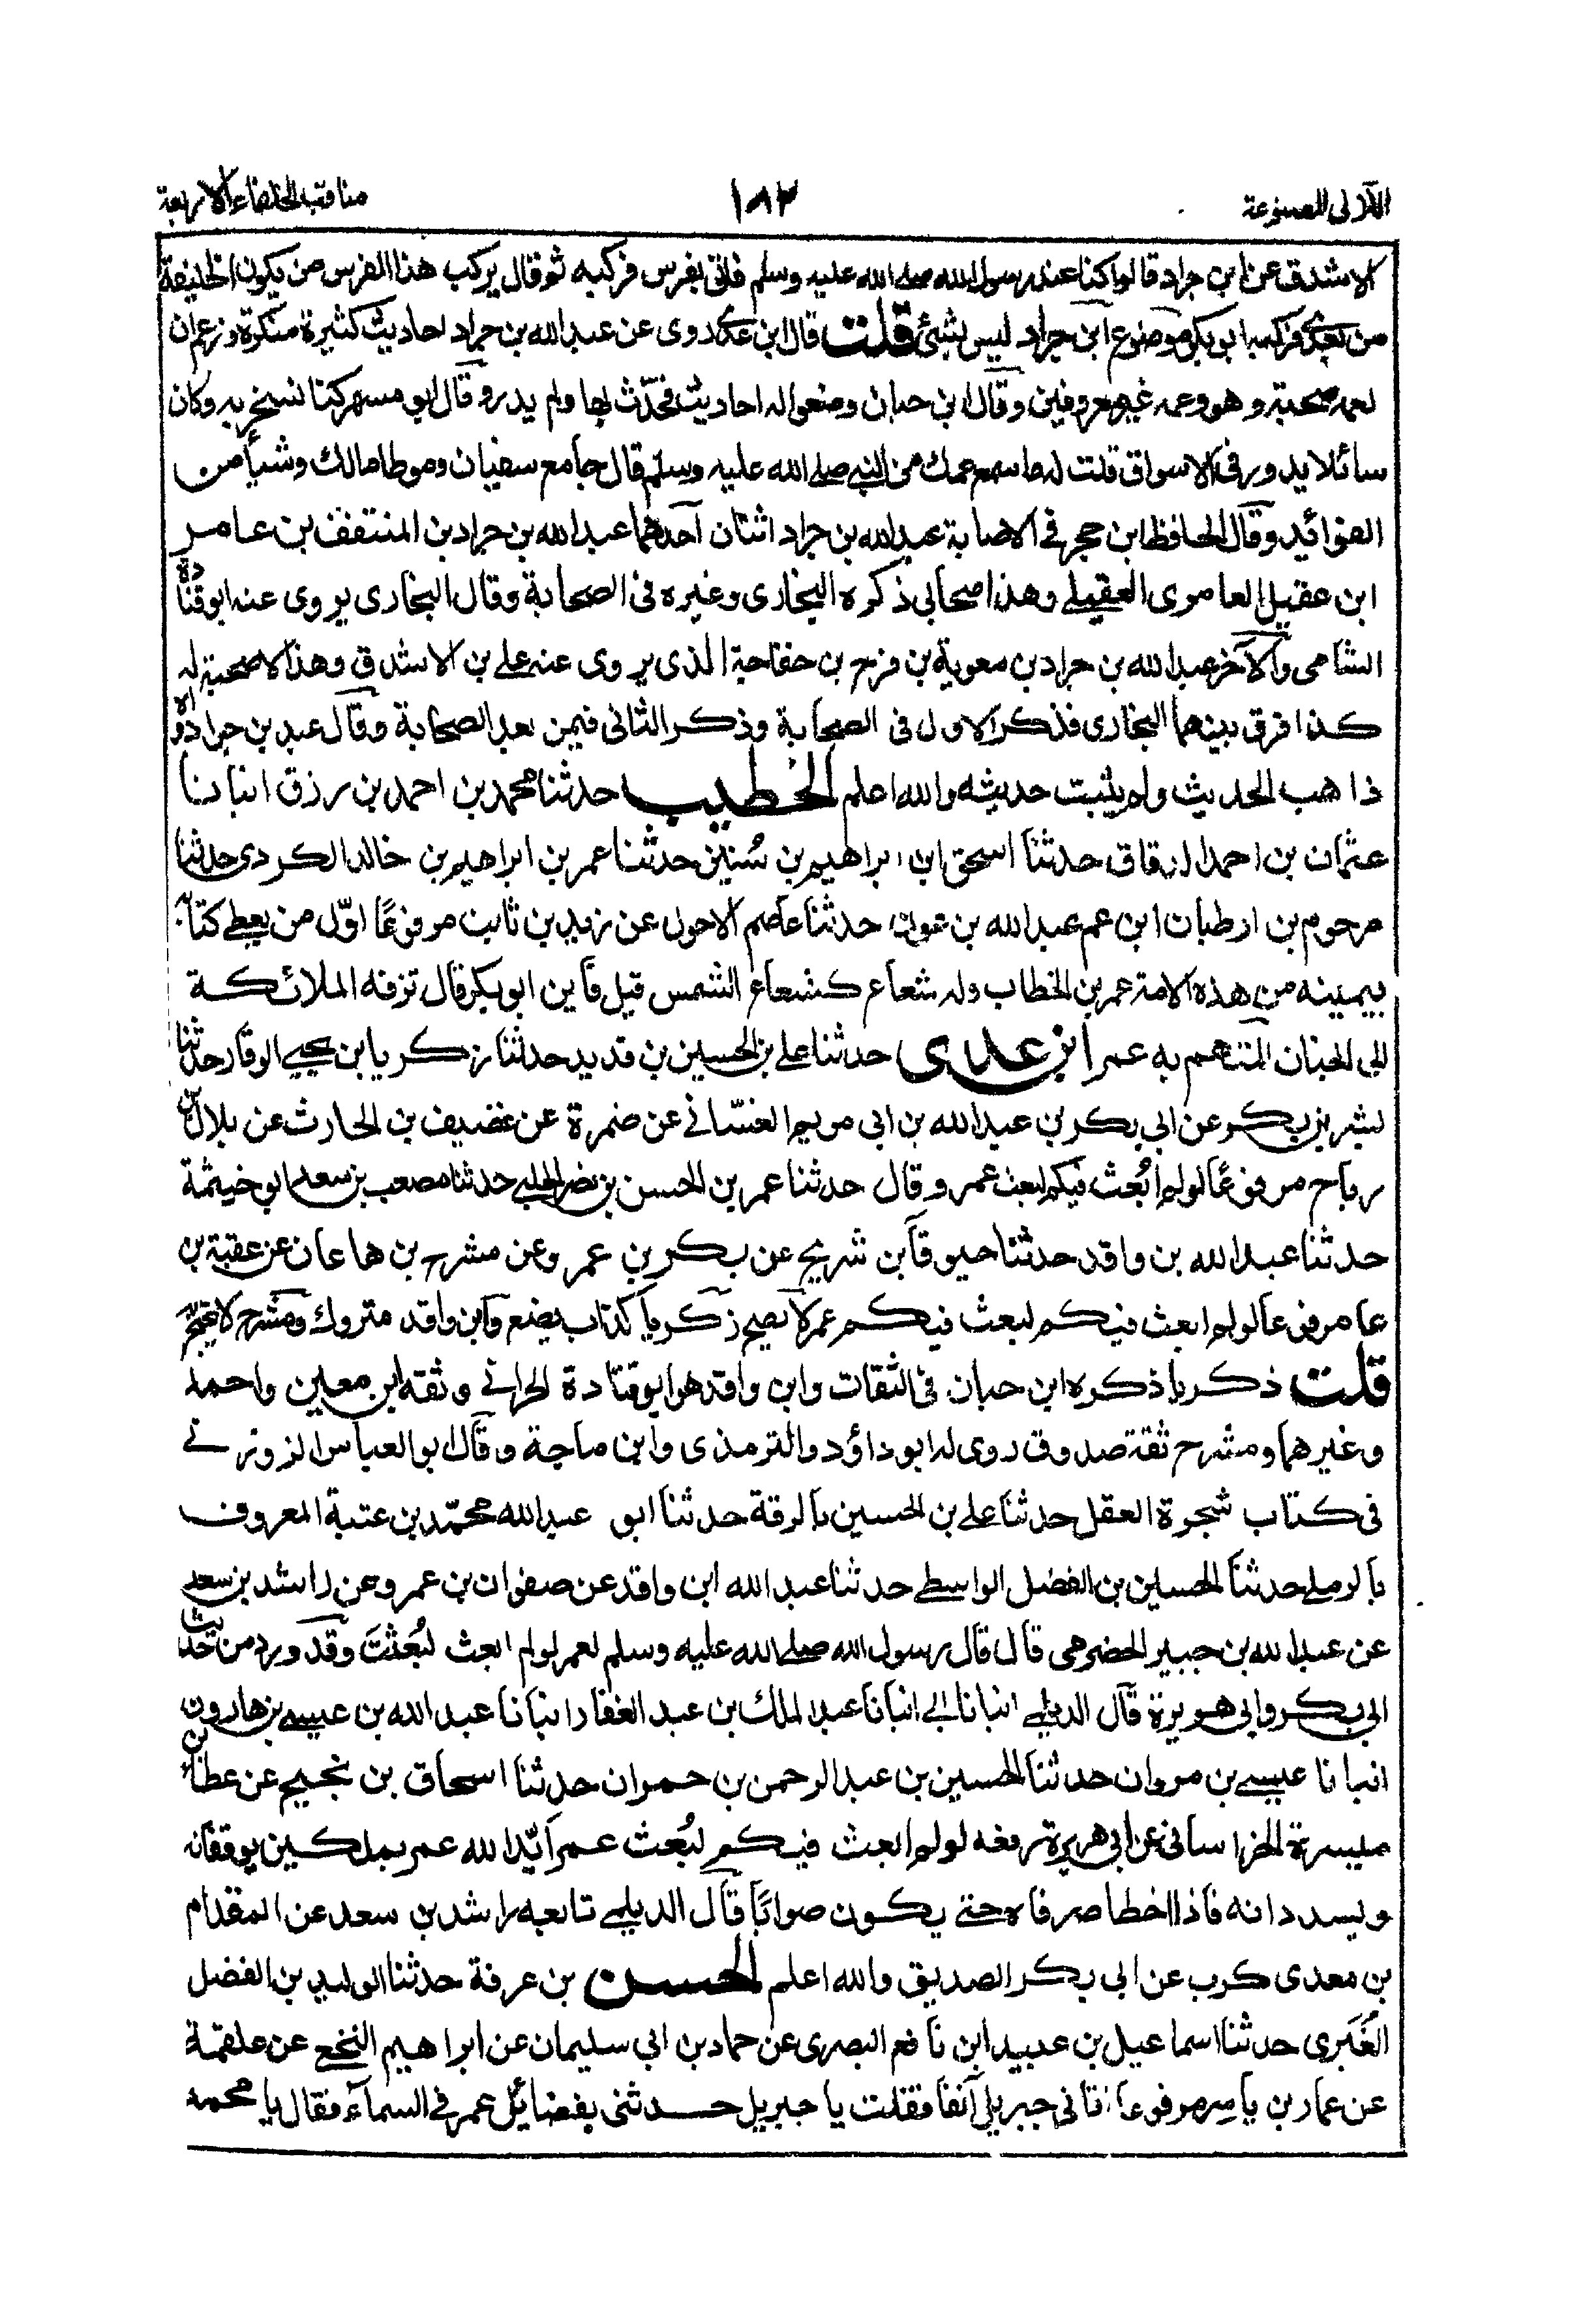 اللآلى المصنوعة ١٨٢ مناقب الخلفاء الاربعة
الاشدق عن ابن جراد قالوا كنا عند رسول الله صلى الله عليه وسلم فاتى بفرس فركبه ثم قال يركب هذا الفرس من يكون الخليفة
من بعدى فركبه ابو بكر موضوع ابن جراد ليس بشئ قلت قال ابن عدى روى عن عبد الله بن جراد احاديث كثيرة منكرة وزعم ان
لعمه صحبة وهو وعمه غير معروفين وقال ابن حبان وضعوا له احاديث فحدّث بها ولم يدر وقال ابو مسهر كنا نسخر به وكان
سائلا يدور فى الاسواق قلت له ما سمع عمك من النبي صلى الله عليه وسلم قال جامع سفيان وموطا مالك وشيأ من
الفوائد وقال الحافظ ابن حجر فى الاصابة عبد الله بن جراد اثنان احدهما عبد الله بن جراد بن المنتفق بن عامر
ابن عقيل العامرى العقيلى وهذا صحابى ذكره البخارى وغيره فى الصحابة وقال البخارى يروى عنه ابو قتادة
الشامى والآخر عبد الله بن جراد بن معوية بن فرج بن خفاجة الذى يروى عنه على بن الاشدق وهذا لا صحبة له
كذا فرق بينهما البخارى فذكر الاول فى الصحابة وذكر الثانى فيمن بعد الصحابة وقال عبد بن جراد
ذاهب الحديث ولم يثبت حديثه والله اعلم الخطيب حدثنا محمد بن احمد بن رزق انبانا
عثمان بن احمد الزقاق حدثنا اسحق ابن ابراهيم بن سُنين حدثنا عمر بن ابراهيم بن خالد الكردى حدثنا
مرحوم بن ارطبان ابن عم عبد الله بن عون حدثنا عاصم الاحول عن زيد بن ثابت مرفوعًا اوّل من يعطى كتابه
بيمينه من هذه الامة عمر بن الخطاب وله شعاع كشعاع الشمس قيل فأين ابو بكر قال تزفه الملائكة
الى الجنان المتهم به عمر ابن عدى حدثنا على بن الحسين بن قديد حدثنا زكريا ابن يحيى الوقار حدثنا
بشر بن بكر عن ابى بكر بن عبد الله بن ابى مريم الغسّانى عن ضمرة عن غضيف بن الحارث عن بلال بن
رباح مرفوعًا لو لم اُبعث فيكم لبعث عمر وقال حدثنا عمر بن الحسن بن نصر الحلبى حدثنا مصعب بن سعد ابو خيثمة
حدثنا عبد الله بن واقد حدثنا حيوة ابن شريح عن بكر بن عمرو عن مشرح بن هاعان عن عقبة بن
عامر مرفوعا لو لم ابعث فيكم لبعث فيكم عمر لا يصح زكريا كذاب يضع وابن واقد متروك ومشرح لا يحتج به
قلت ذكريا ذكره ابن حبان فى الثقات وابن واقد هو ابو قتادة الحرانى وثقه ابن معين واحمد
وغيرهما ومشرح ثقة صدوق روى له ابو داؤد والترمذى وابن ماجة وقال ابو العباس الزوزنى
فى كتاب شجرة العقل حدثنا على بن الحسين بالرقة حدثنا ابو عبد الله محمّد بن عتبة المعروف
بالرملى حدثنا الحسين بن الفضل الواسطى حدثنا عبد الله ابن واقد عن صفوان بن عمرو عن راشد بن سعد
عن عبد الله بن جبير الحضرمى قال قال رسول الله صلى الله عليه وسلم لعمر لو لم ابعث لبُعثتَ وقد ورد من حديث
ابى بكر وابى هويرة قال الديلمى انبانا ابى انبانا عبد الملك بن عبد الغفار انبانا عبد الله بن عيسى بن هارون
انبانا عيسى بن مروان حدثنا الحسين بن عبد الرحمن بن حمران حدثنا اسحاق بن نجيح عن عطاء بن
ميسرة الخراسانى عن ابى هريرة رفعه لو لم ابعث فيكم لبُعث عمر ايّد الله عمر بملكين يوفقانه
ويسددانه فاذا اخطا صرفاه حتى يكون صوابًا قال الديلمى تابعه راشد بن سعد عن المقدام
بن معدى كرب عن ابى بكر الصديق والله اعلم الحسن بن عرفة حدثنا الوليد بن الفضل
العَنَبرى حدثنا اسماعيل بن عبيد ابن نافع البصرى عن حماد بن ابى سليمان عن ابراهيم النخعى عن علقمة
عن عمار بن ياسر مرفوعا اتانى جبريل آنفا فقلت يا جبريل حدثنى بفضائل عمر فى السمآء فقال يا محمد